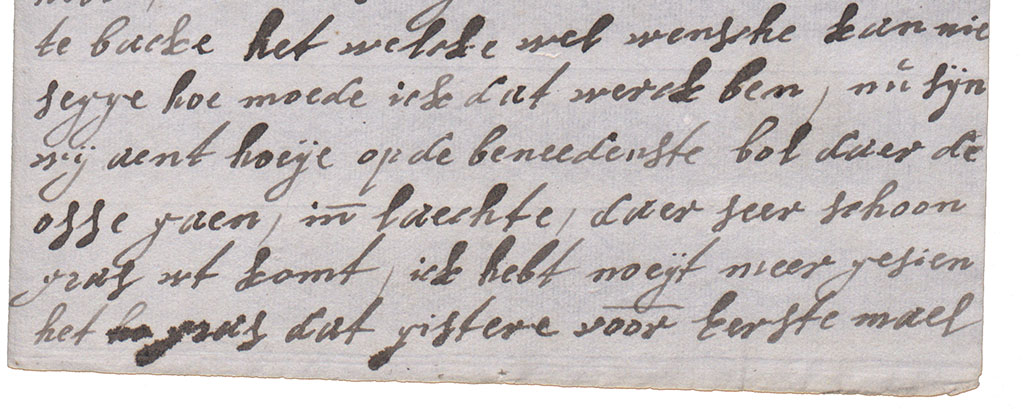 te backe het welcke wel wensche kan nie
segge hoe moede ick dat werck ben, nŭ sÿn
wÿ aent hoeÿe op de beneedenste bol daer de
osse gaen, in̄ laechte, daer seer schoon
gras ut komt, ick hebt noeÿt meer gesien
het gras dat gistere voor̄ Eerste mael